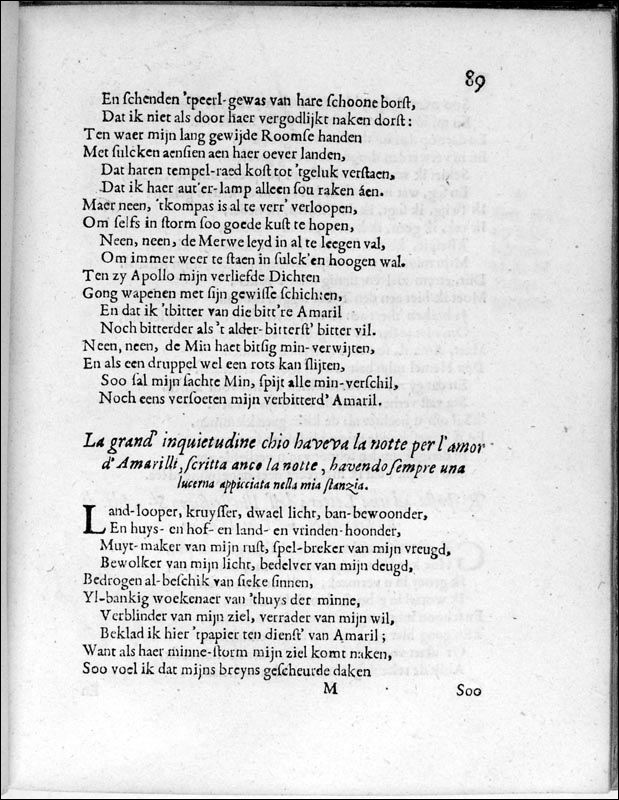 89
En schenden 'tpeerl-gewas van hare schoone borst,
Dat ik niet als door haer vergodlijkt naken dorst:
Ten waer mijn lang gewijde Roomse handen
Met sulcken aensien aen haer oever landen,
Dat haren tempel-raed kost tot 'tgeluk verstaen,
Dat ik haer aut'er-lamp alleen sou raken áen.
Maer neen, 'tkompas is al te verr' verloopen,
Om selfs in storm soo goede kust te hopen,
Neen, neen, de Merwe leyd in al te leegen val,
Om immer weer te staen in sulck'en hoogen wal.
Ten zy Apollo mijn verliefde Dichten
Gong wapenen met sijn gewisse schichten,
En dat ik 'tbitter van die bitt're Amaril
Noch bitterder als 't alder-bitterst' bitter vil.
Neen, neen, de Min haet bitsig min-verwijten,
En als een druppel wel een rots kan slijten,
Soo sal mijn sachte Min, spijt alle min-verschil,
Noch eens versoeten mijn verbitterd' Amaril.
La grand' inquietudine chio haveva la notte per l'amor
d'Amarilli, scritta anco la notte, havendo sempre una
lucerna appicciata nella mia stanzia.
Land-looper, kruysser, dwael licht, ban-bewoonder,
En huys- en hof- en land- en vrinden-hoonder,
Muyt-maker van mijn rust, spel-breker van mijn vreugd,
Bewolker van mijn licht, bedelver van mijn deugd,
Bedrogen al-beschik van sieke sinnen,
Yl-bankig woekenaer van 'thuys der minne,
Verblinder van mijn ziel, verrader van mijn wil,
Beklad ik hier 'tpapier ten dienst' van Amaril;
Want als haer minne-storm mijn ziel komt naken,
Soo voel ik dat mijns breyns gescheurde daken
M Soo